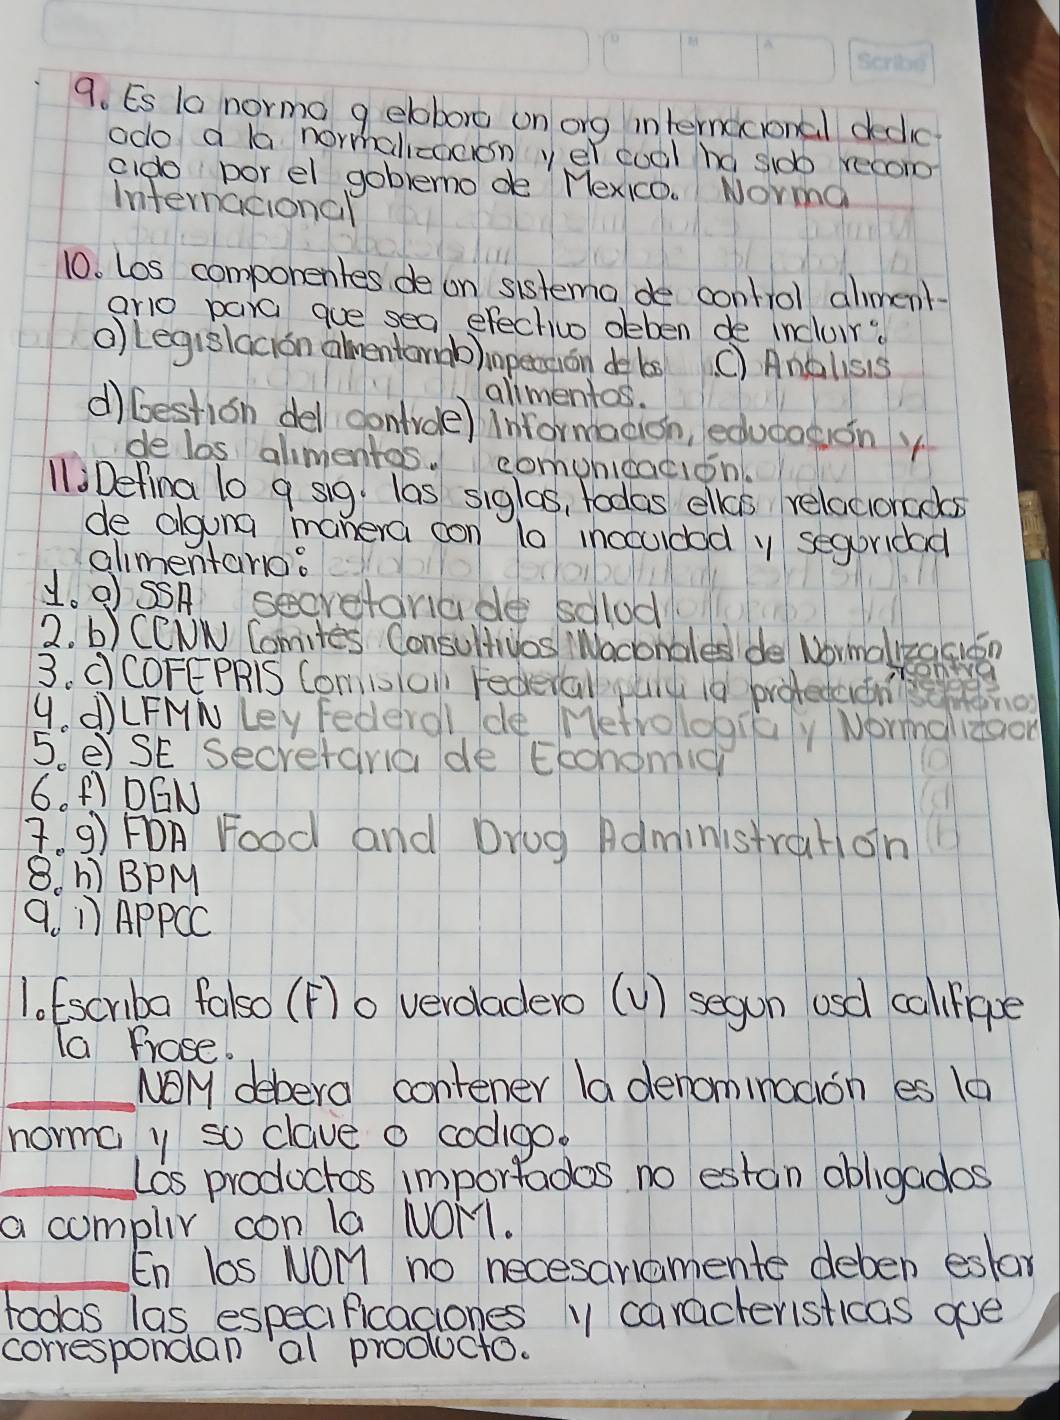 Scribe
9. Es la norma q elabora un org internacional dedic-
ado a la normalización y el cual ha sido recono-
cido por el gobierno de Mexico. Norma
Internacional
10. Los componentes de un sistema de control aliment-
ario para que sea efectivo deben de incluir:
a) Legislación alimentaria b) inpección de los c) Analisis
alimentos.
d) Gestión del control e) Información, educación y
de los alimentos. comunicación.
11. Defina lo q sig. las siglas, todas ellas relacionadas
de alguna manera con la inocuidad y seguridad
alimentaria:
1. a) SSA secretaria de salud
2. b) CCNN Comités Consultivos Nacionales de Normalización
3. c) COFEPRIS Comision Federal para la protección contra
4. d) LFMN Ley Federal de Metrología y Normalizacon
5. e) SE Secretaria de Economia
6. f) DGN
7. g) FDA Food and Drug Administration
8. h) BPM
9. i) APPCC
1. Escriba falso (F) o verdadero (V) segun usd califique
la frase.
NOM debera contener la denominación es la
norma y su clave o codigo.
Los productos importados no estan obligados
a cumplir con la NOM.
En los NOM no necesariamente deben estar
todas las especificaciones y caracteristicas que
correspondan al producto.